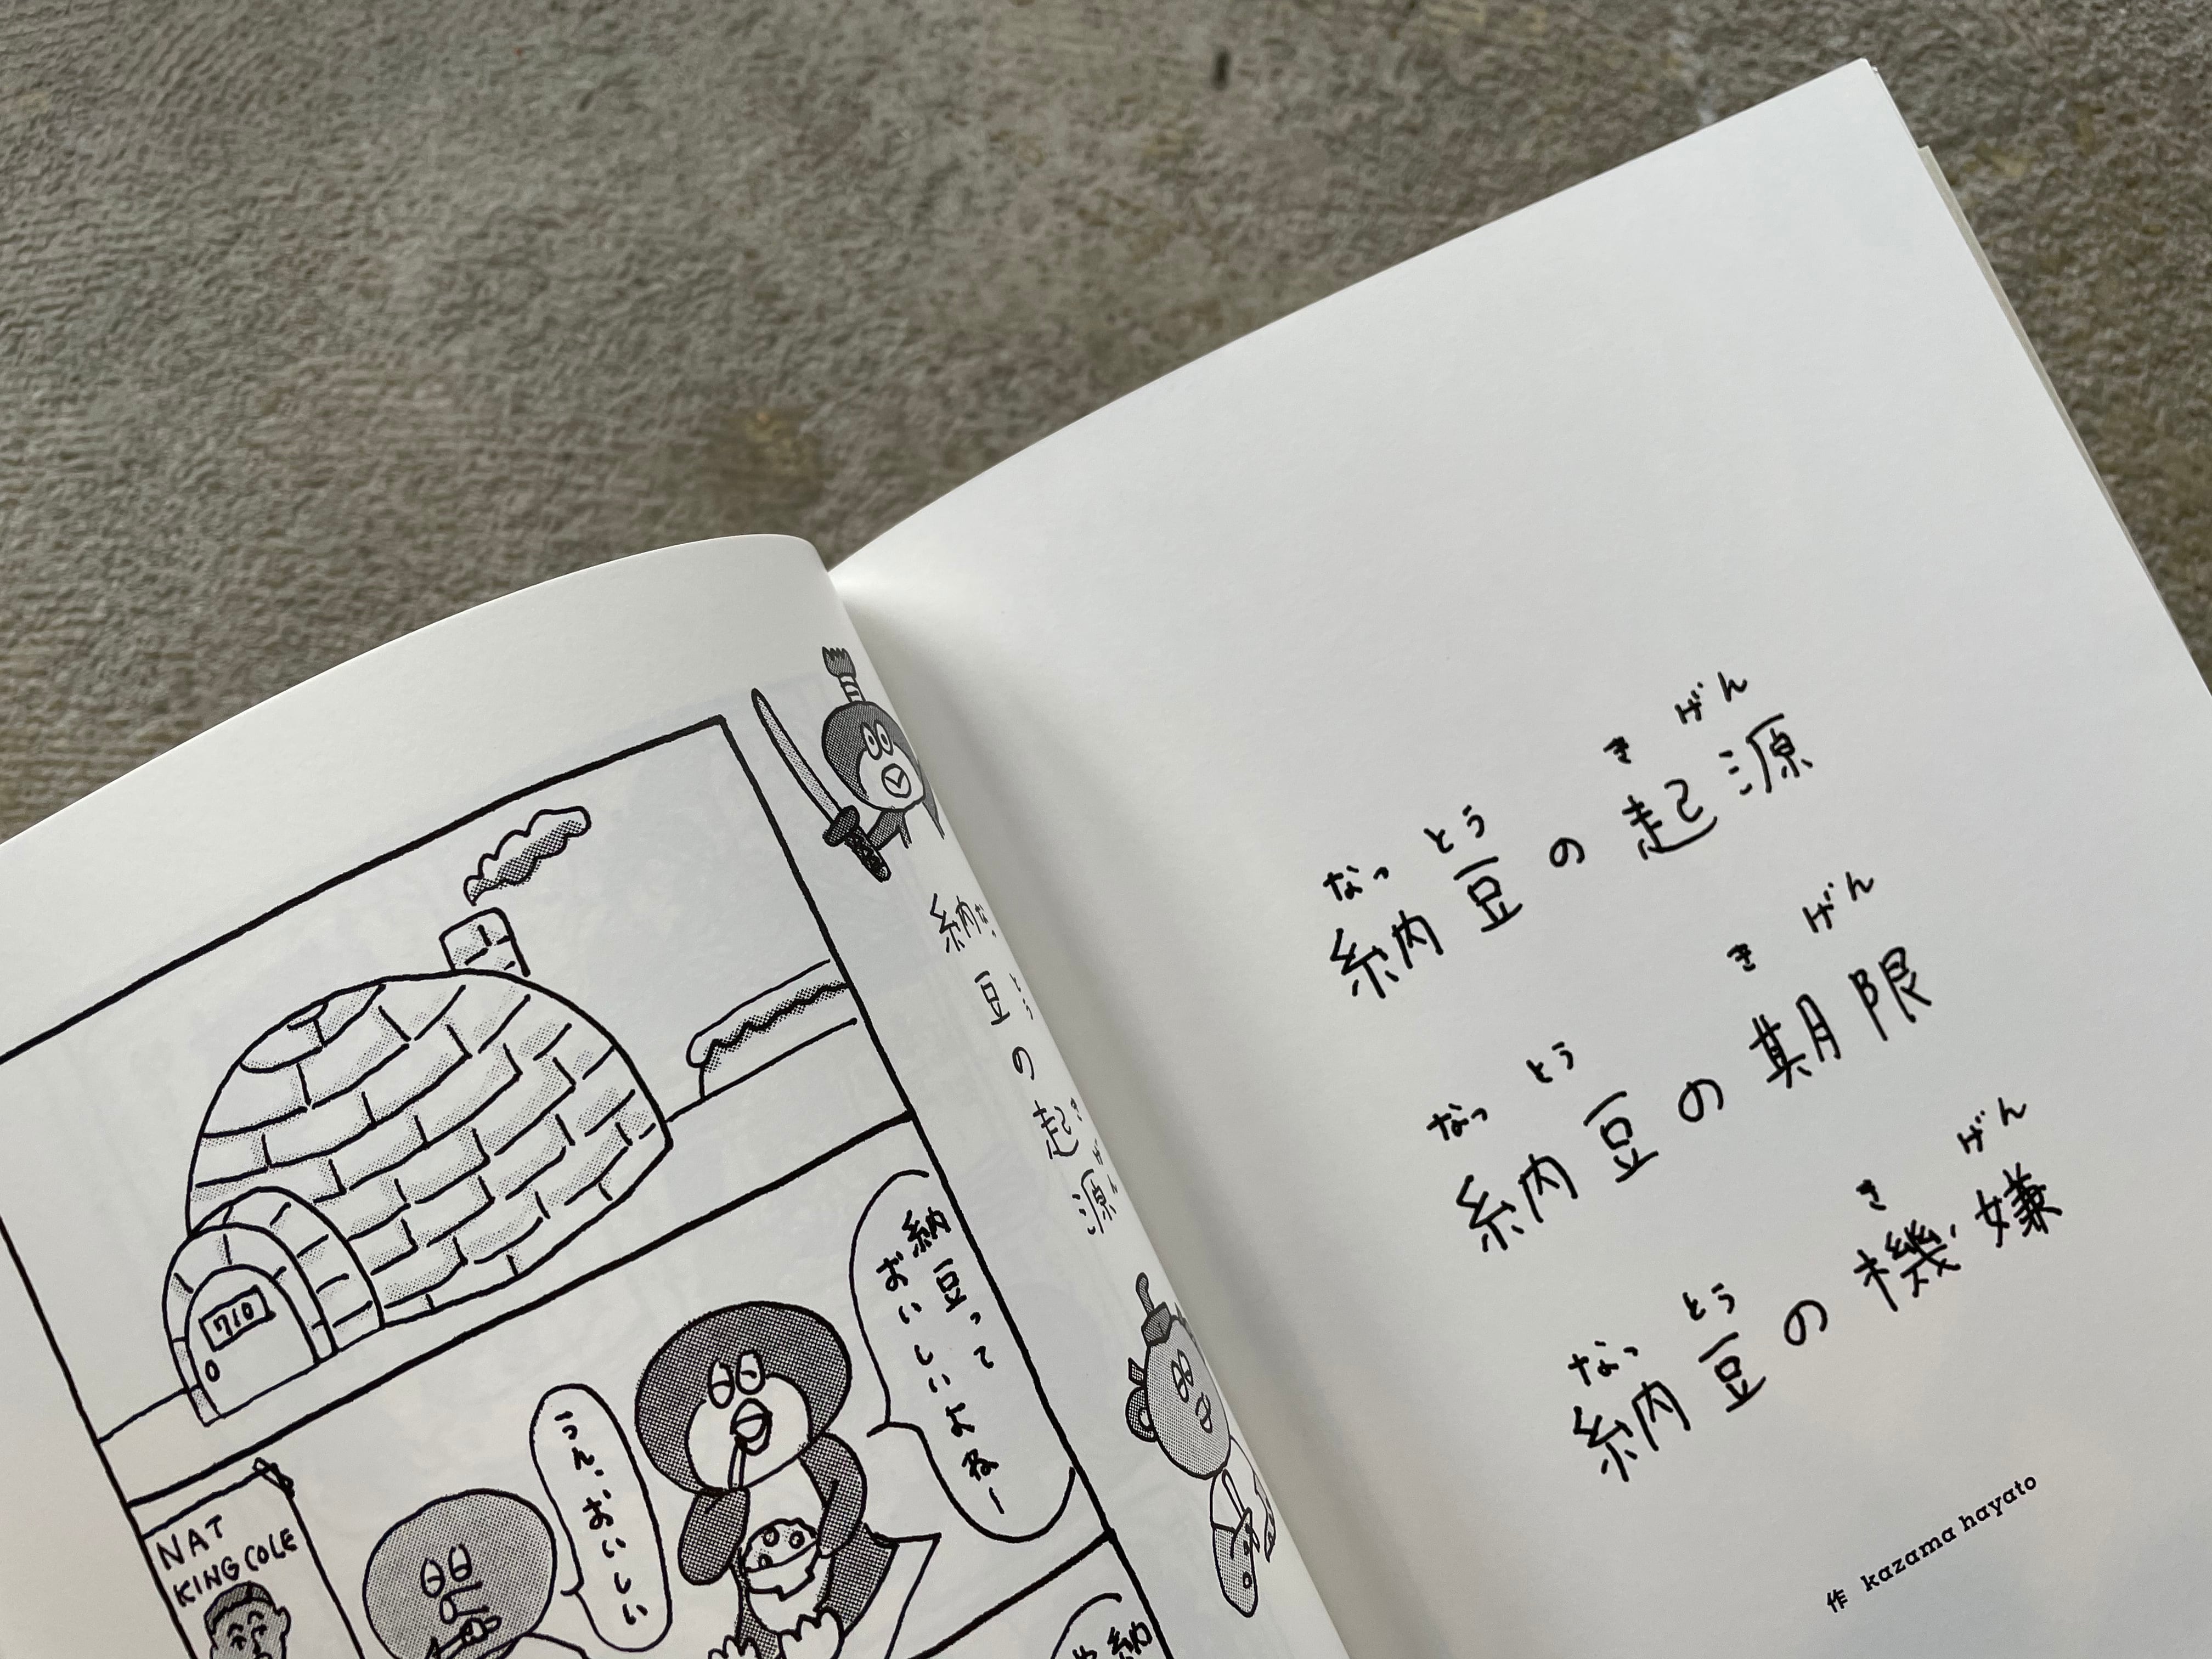 なっとう きげん
納豆の起源
なっとう きげん
納豆の期限
なっとう きげん
納豆の機嫌
作 kazama hayato
納豆の起源
710
納豆って
おいしいよねー
うん、おいしい
NAT
KING COLE
納